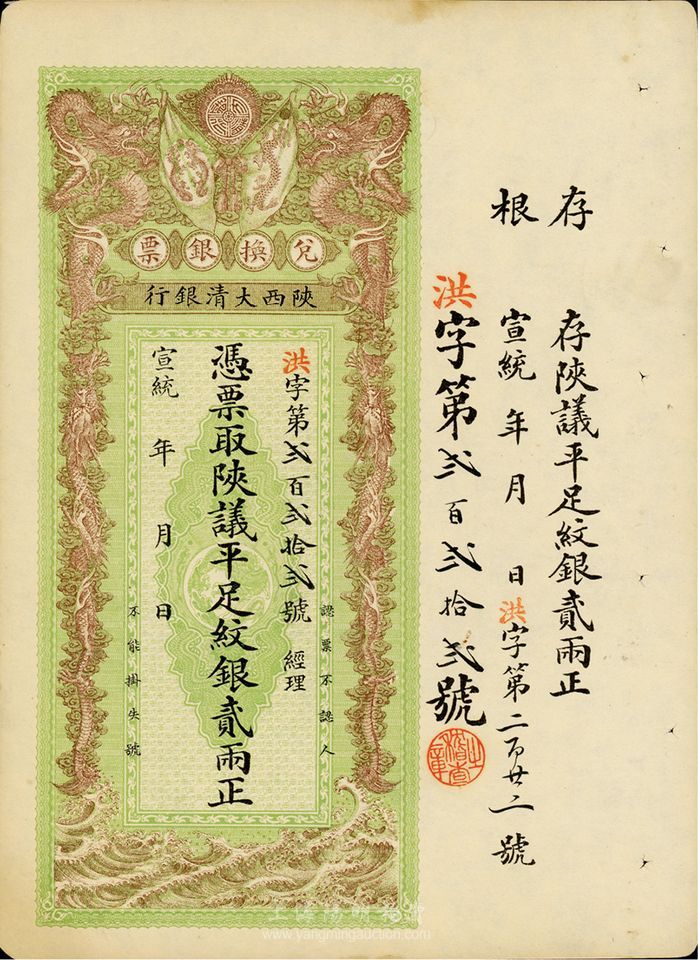 存根
存陝議平足紋銀貳兩正
宣統 年 月 日 洪字第二百廿二號
洪字第弍百弍拾弍號
兌換銀票
陝西大清銀行
認票不認人
洪字第弍百弍拾弍號 經理
憑票取陝議平足紋銀貳兩正
宣統 年 月 日
不能掛失號
www.yangmingauction.com